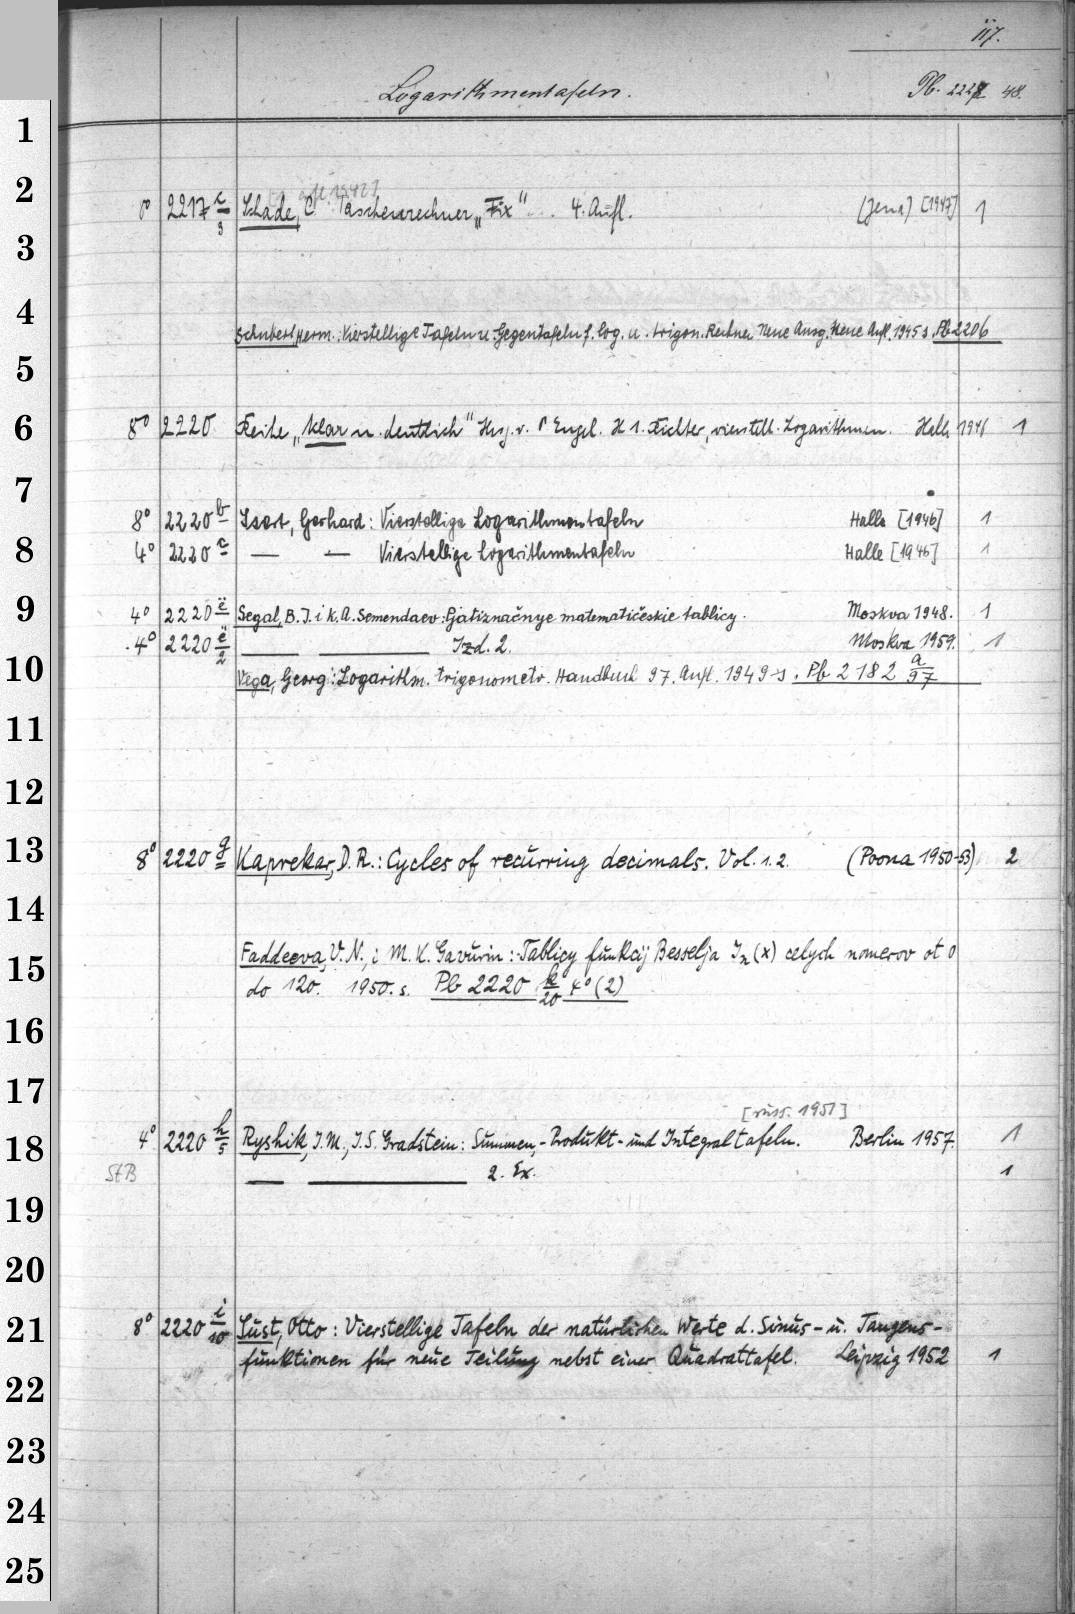 117.
Logarithmentafeln. Pb. 222 48.
1
2
3
4
5
6
7
8
9
10
11
12
13
14
15
16
17
18
19
20
21
22
23
24
25
1942]
8° 2217 c/3 Schade, C. Taschenrechner „Fix“ ... 4. Aufl. (Jena) [1947] 1
Schubert, Herm.: Vierstellige Tafeln u. Gegentafeln f. log. u. trigon. Rechnen Neue Ausg. Neue Aufl. 1945 s. Pb 2206
8° 2220 Reihe „klar u. deutlich“ Hrsg. v. P Engel. H 1. Richter, vierstell. Logarithmen. Halle 1946 1
8° 2220 b Isert, Gerhard: Vierstellige Logarithmentafeln Halle [1946] 1
4° 2220 c — — Vierstellige Logarithmentafeln Halle [1946] 1
4° 2220 e Segal, B. I. i K. A. Semendaev: Pjatiznačnye matematičeskie tablicy. Moskva 1948. 1
4° 2220 e/2 — — Izd. 2. Moskva 1959. 1
Vega, Georg: Logarithm. trigonometr. Handbuch 97. Aufl. 1949 s. Pb 2182 a/97
8° 2220 g Kaprekar, D. R.: Cycles of recurring decimals. Vol. 1. 2. (Poona 1950-53) 2
Faddeeva, V. N., i M. K. Gavurin: Tablicy funkcij Besselja Jn(x) celych nomerov ot 0
do 120. 1950. s. Pb 2220 h/20 4° (2)
[russ. 1951]
4° 2220 h/5 Ryshik, I. M., I. S. Gradstein: Summen,- Produkt- und Integraltafeln. Berlin 1957 1
StB — — 2. Ex. 1
8° 2220 i/10 Sust, Otto: Vierstellige Tafeln der natürlichen Werte d. Sinus- u. Tangens-
funktionen für neue Teilung nebst einer Quadrattafel. Leipzig 1952 1